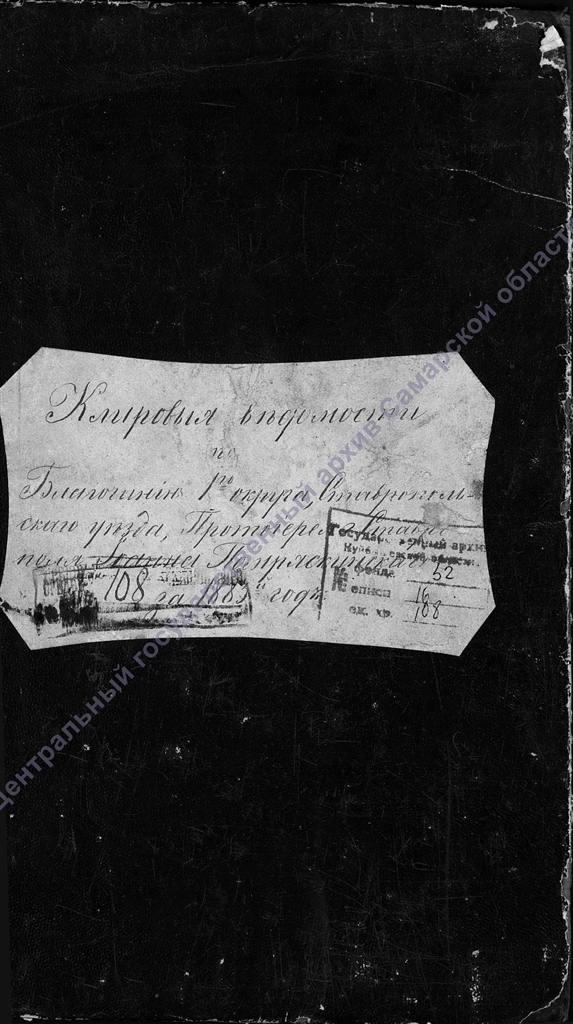 Клировыя вѣдомости
по
Благочинію 1го округа, Ставрополь-
скаго уѣзда, Протоіерея Ставро-
поля Іоанна
за 188 годъ
108
Государственный архив
Куйбышевской области
фонда 32
описи 16
ед. хр. 188
Центральный государственный архив Самарской области